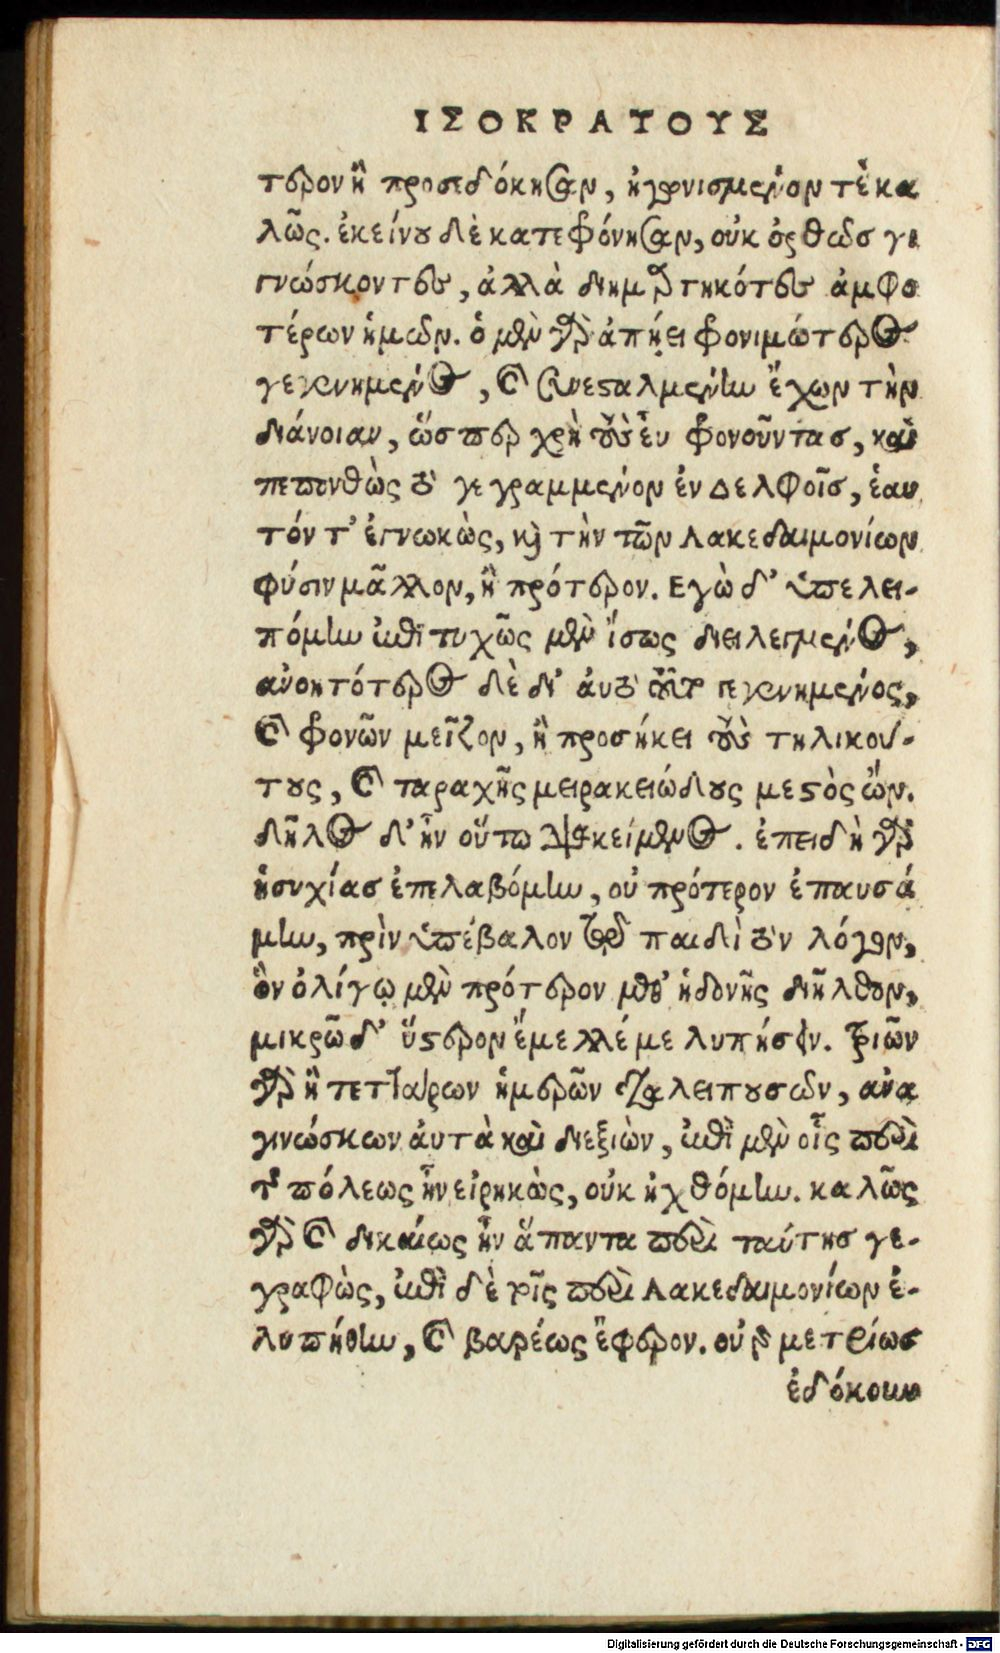 ΙΣΟΚΡΑΤΟΥΣ
τερον ἢ προσεδόκησαν, ἠγωνισμένον τέ κα
λῶς. ἐκείνου δὲ κατεφρόνησαν, οὐκ ὀρθῶσ γι
γνώσκοντες, ἀλλὰ διημαρτηκότες ἀμφο
τέρων ἡμῶν. ὁ μὲν γὰρ ἀπῄει φρονιμώτερος
γεγενημένος, καὶ συνεσταλμένην ἔχων τὴν
διάνοιαν, ὥσπερ χρὴ τοὺς εὖ φρονοῦντασ, καὶ
πεπονθὼς τὸ γεγραμμένον ἐν Δελφοῖσ, ἑαυ
τόν τ' ἐγνωκὼς, καὶ τὴν τῶν Λακεδαιμονίων
φύσιν μᾶλλον, ἢ πρότερον. Εγὼ δ' ὑπελει-
πόμην ἐπιτυχῶς μὲν ἴσως διειλεγμένος,
ἀνοητότερος δὲ δι' αὐτὸ τοῦτο γεγενημένος,
καὶ φρονῶν μεῖζον, ἢ προσήκει τοὺς τηλικού-
τους, καὶ ταραχῆς μειρακειώδους μεστὸς ὤν.
δῆλος δ' ἦν οὕτω διακείμενος. ἐπειδὴ γὰρ
ἡσυχίασ ἐπελαβόμην, οὐ πρότερον ἐπαυσά
μην, πρὶν ὑπέβαλον τῷ παιδὶ τὸν λόγον,
ὃν ὀλίγῳ μὲν πρότερον μεθ' ἡδονῆς διῆλθον,
μικρῶ δ' ὕστερον ἔμελλέ με λυπήσειν. τριῶν
γὰρ ἢ τεττάρων ἡμερῶν διαλειπουσῶν, ἀνα
γινώσκων αὐτὰ καὶ διεξιὼν, ἐπὶ μὲν οἷς περὶ
τῆς πόλεως ἦν εἰρηκὼς, οὐκ ἠχθόμην. καλῶς
γὰρ καὶ δικαίως ἦν ἅπαντα περὶ ταύτησ γε-
γραφὼς, ἐπὶ δὲ τοῖς περὶ Λακεδαιμονίων ἐ-
λυπήθην, καὶ βαρέως ἔφερον. οὐ γὰρ μετρίωσ
ἐδόκουν
Digitalisierung gefördert durch die Deutsche Forschungsgemeinschaft - DFG